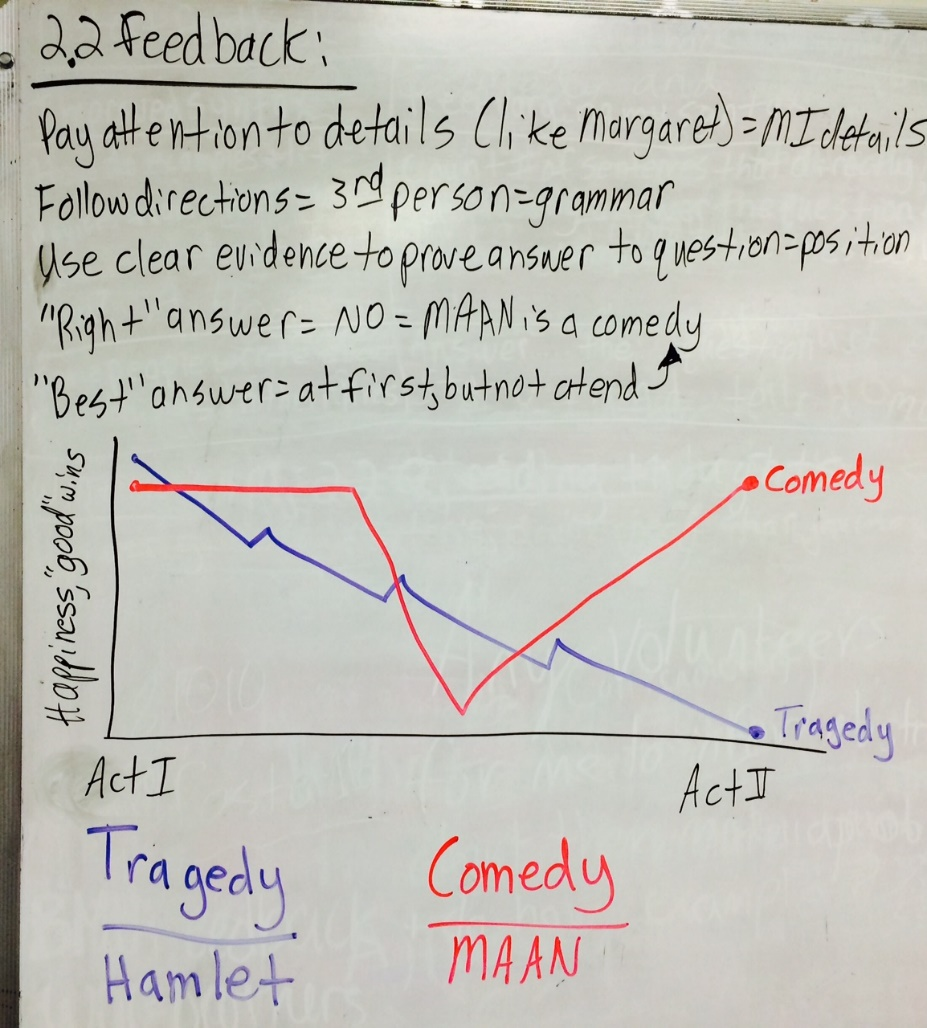 2.2 Feedback:
Pay attention to details (like Margaret) = MI details
Follow directions = 3rd person = grammar
Use clear evidence to prove answer to question = position
"Right" answer = NO = MAAN is a comedy
"Best" answer = at first, but not at end
Happiness, "good" wins
Comedy
Tragedy
Act I
Act II
Tragedy
Hamlet
Comedy
MAAN